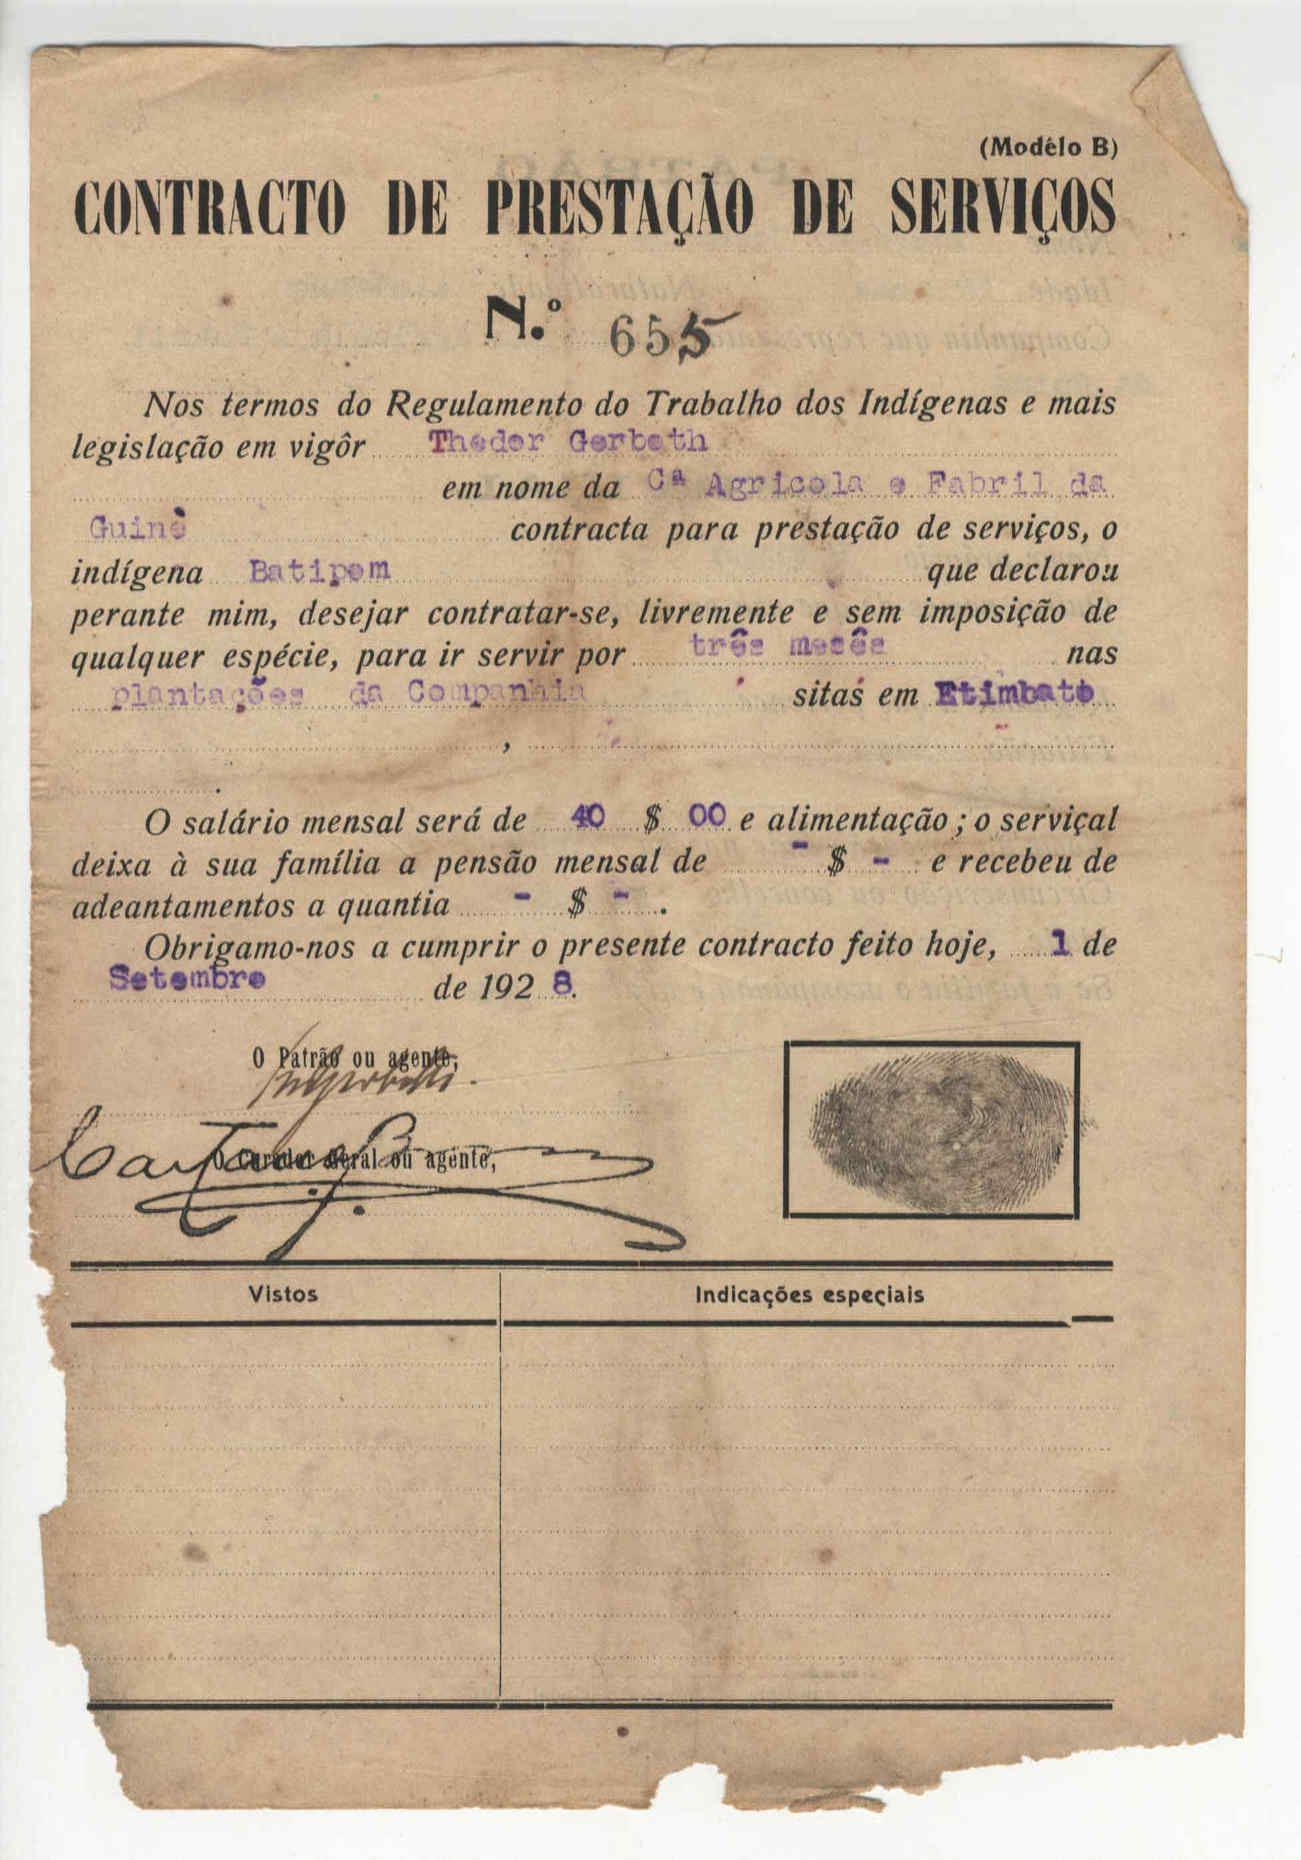 (Modêlo B)
CONTRACTO DE PRESTAÇÃO DE SERVIÇOS
N.º 655
Nos termos do Regulamento do Trabalho dos Indígenas e mais
legislação em vigôr Theder Gerbeth
em nome da Cª Agricola e Fabril da
Guinè contracta para prestação de serviços, o
indígena Batipem que declarou
perante mim, desejar contratar-se, livremente e sem imposição de
qualquer espécie, para ir servir por três mesês nas
plantações da Companhia sitas em Etimbato
,
.
O salário mensal será de 40 $ 00 e alimentação; o serviçal
deixa à sua família a pensão mensal de - $ - e recebeu de
adeantamentos a quantia - $ - .
Obrigamo-nos a cumprir o presente contracto feito hoje, 1 de
Setembro de 1928.
O Patrão ou agente,
O Curador Geral ou agente,
Vistos Indicações especiais